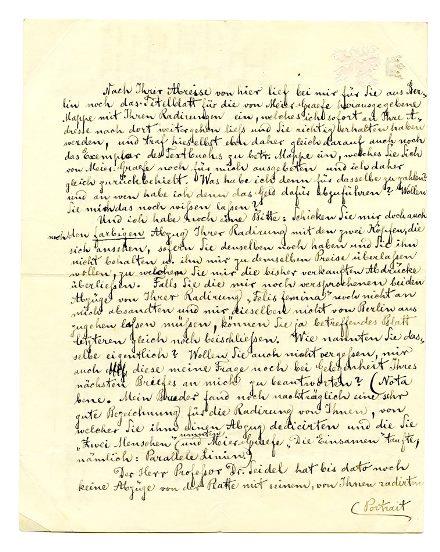 Nach Ihrer Abreise von hier lief bei mir für Sie aus Ber-
lin noch das Titelblatt für die von Meier-Graefe herausgegebene
Mappe mit Ihren Radirungen ein, welches ich sofort an Ihre A-
dresse nach dort weitergehen liess und Sie richtig erhalten haben
werden, und traf hieselbst ein daher gleich darauf auch noch
das Exemplar des Textbuchs zu betr. Mappe ein, welches Sie sich
von Meier-Graefe noch für mich ausgebeten und ich daher
gleich zurückbehielt. Was habe ich denn für dasselbe zu zahlen
und an wen habe ich denn das Geld dafür abzuführen? Wollen
Sie mir das noch wissen lassen?
Und ich habe noch eine Bitte: schicken Sie mir doch auch
noch den farbigen Abzug Ihrer Radirung mit den zwei Köpfen, die
sich ansehen, sofern Sie denselben noch haben und Sie ihn
nicht behalten u. ihn mir zu demselben Preise überlassen
wollen, zu welchem Sie mir die bisher verkauften Abdrücke
überliessen. Falls Sie die mir noch versprochenen beiden
Abzüge von Ihrer Radirung "Felis femina" noch nicht an
mich absandten und mir dieselben nicht von Berlin aus
zugehen lassen müssen, können Sie ja betreffendes Blatt
letzteren gleich noch beischliessen. Wie nannten Sie das-
selbe eigentlich? Wollen Sie auch nicht vergessen, mir
auch diese meine Frage noch bei Gelegenheit Ihres
nächsten Briefes an mich zu beantworten? (Nota
bene. Mein Bruder fand noch nachträglich eine sehr
gute Bezeichnung für die Radirung von Ihnen, von
welcher Sie ihm einen Abzug dedicirten und die Sie
"Zwei Menschen" und Meier-Graefe "Die Einsamen" taufte,
nämlich: Parallele Linien.)
Der Herr Professor Dr. Seidel hat bis dato noch
keine Abzüge von der Platte mit seinem, von Ihnen radirten
(Portrait